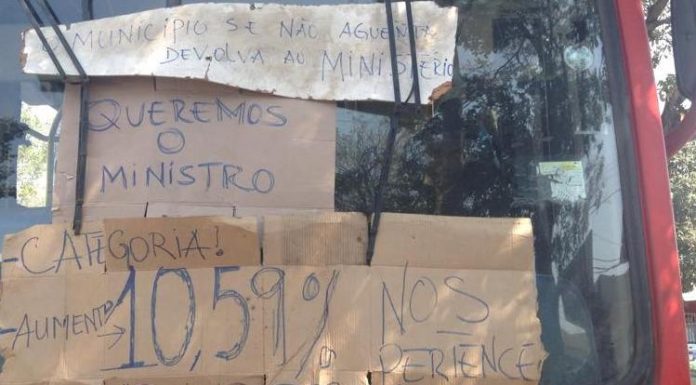 MUNICIPIO SE NÃO AGUENTA
DEVOLVA AO MINISTÉRIO
QUEREMOS
O
MINISTRO
- CATEGORIA!
- AUMENTO → 10,59% NOS
PERIENCE